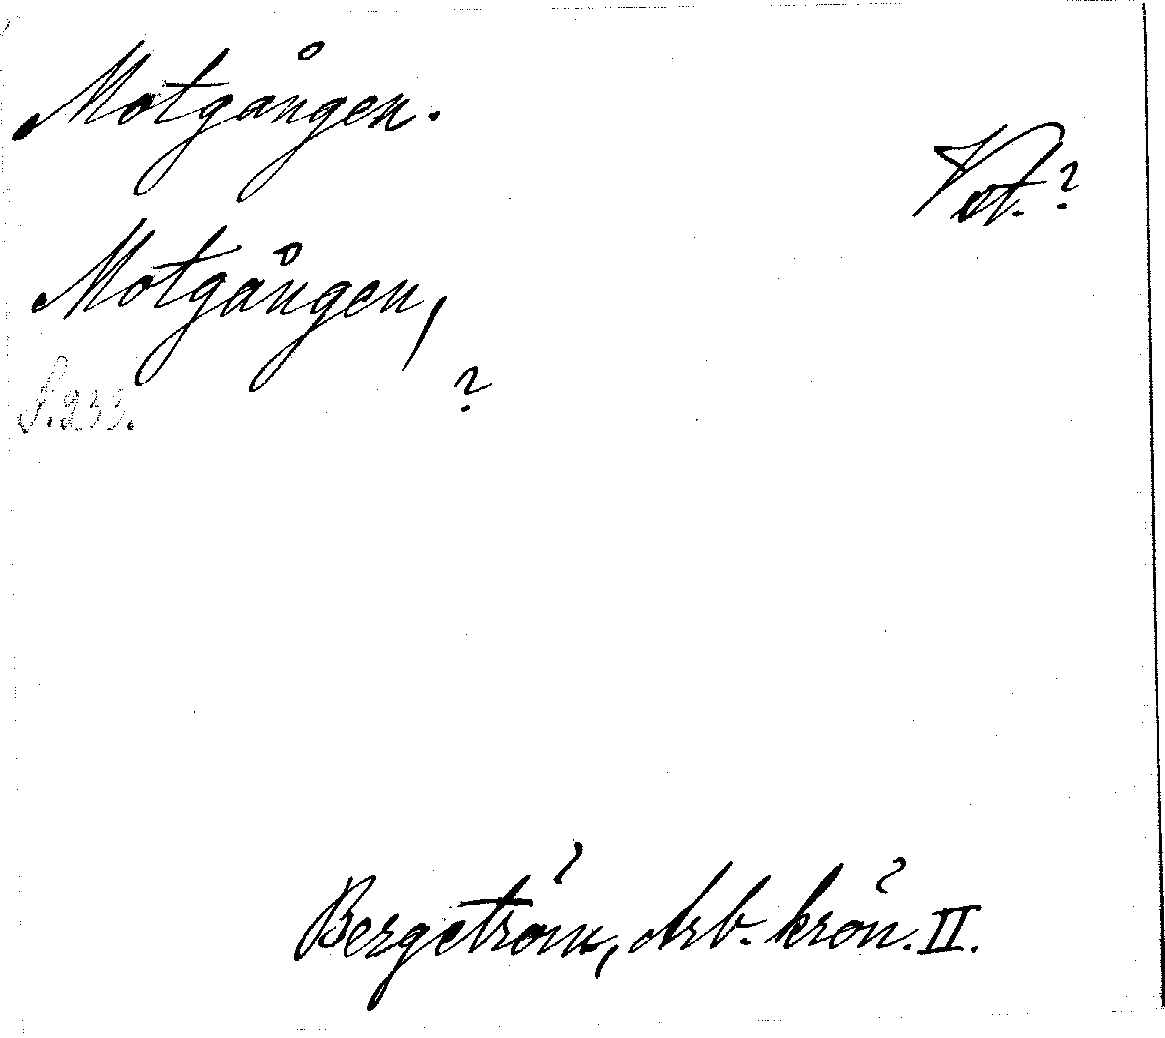 Motgången.
Vet. ?
Motgången,
?
S. 233.
Bergström, Arb. krön. II.